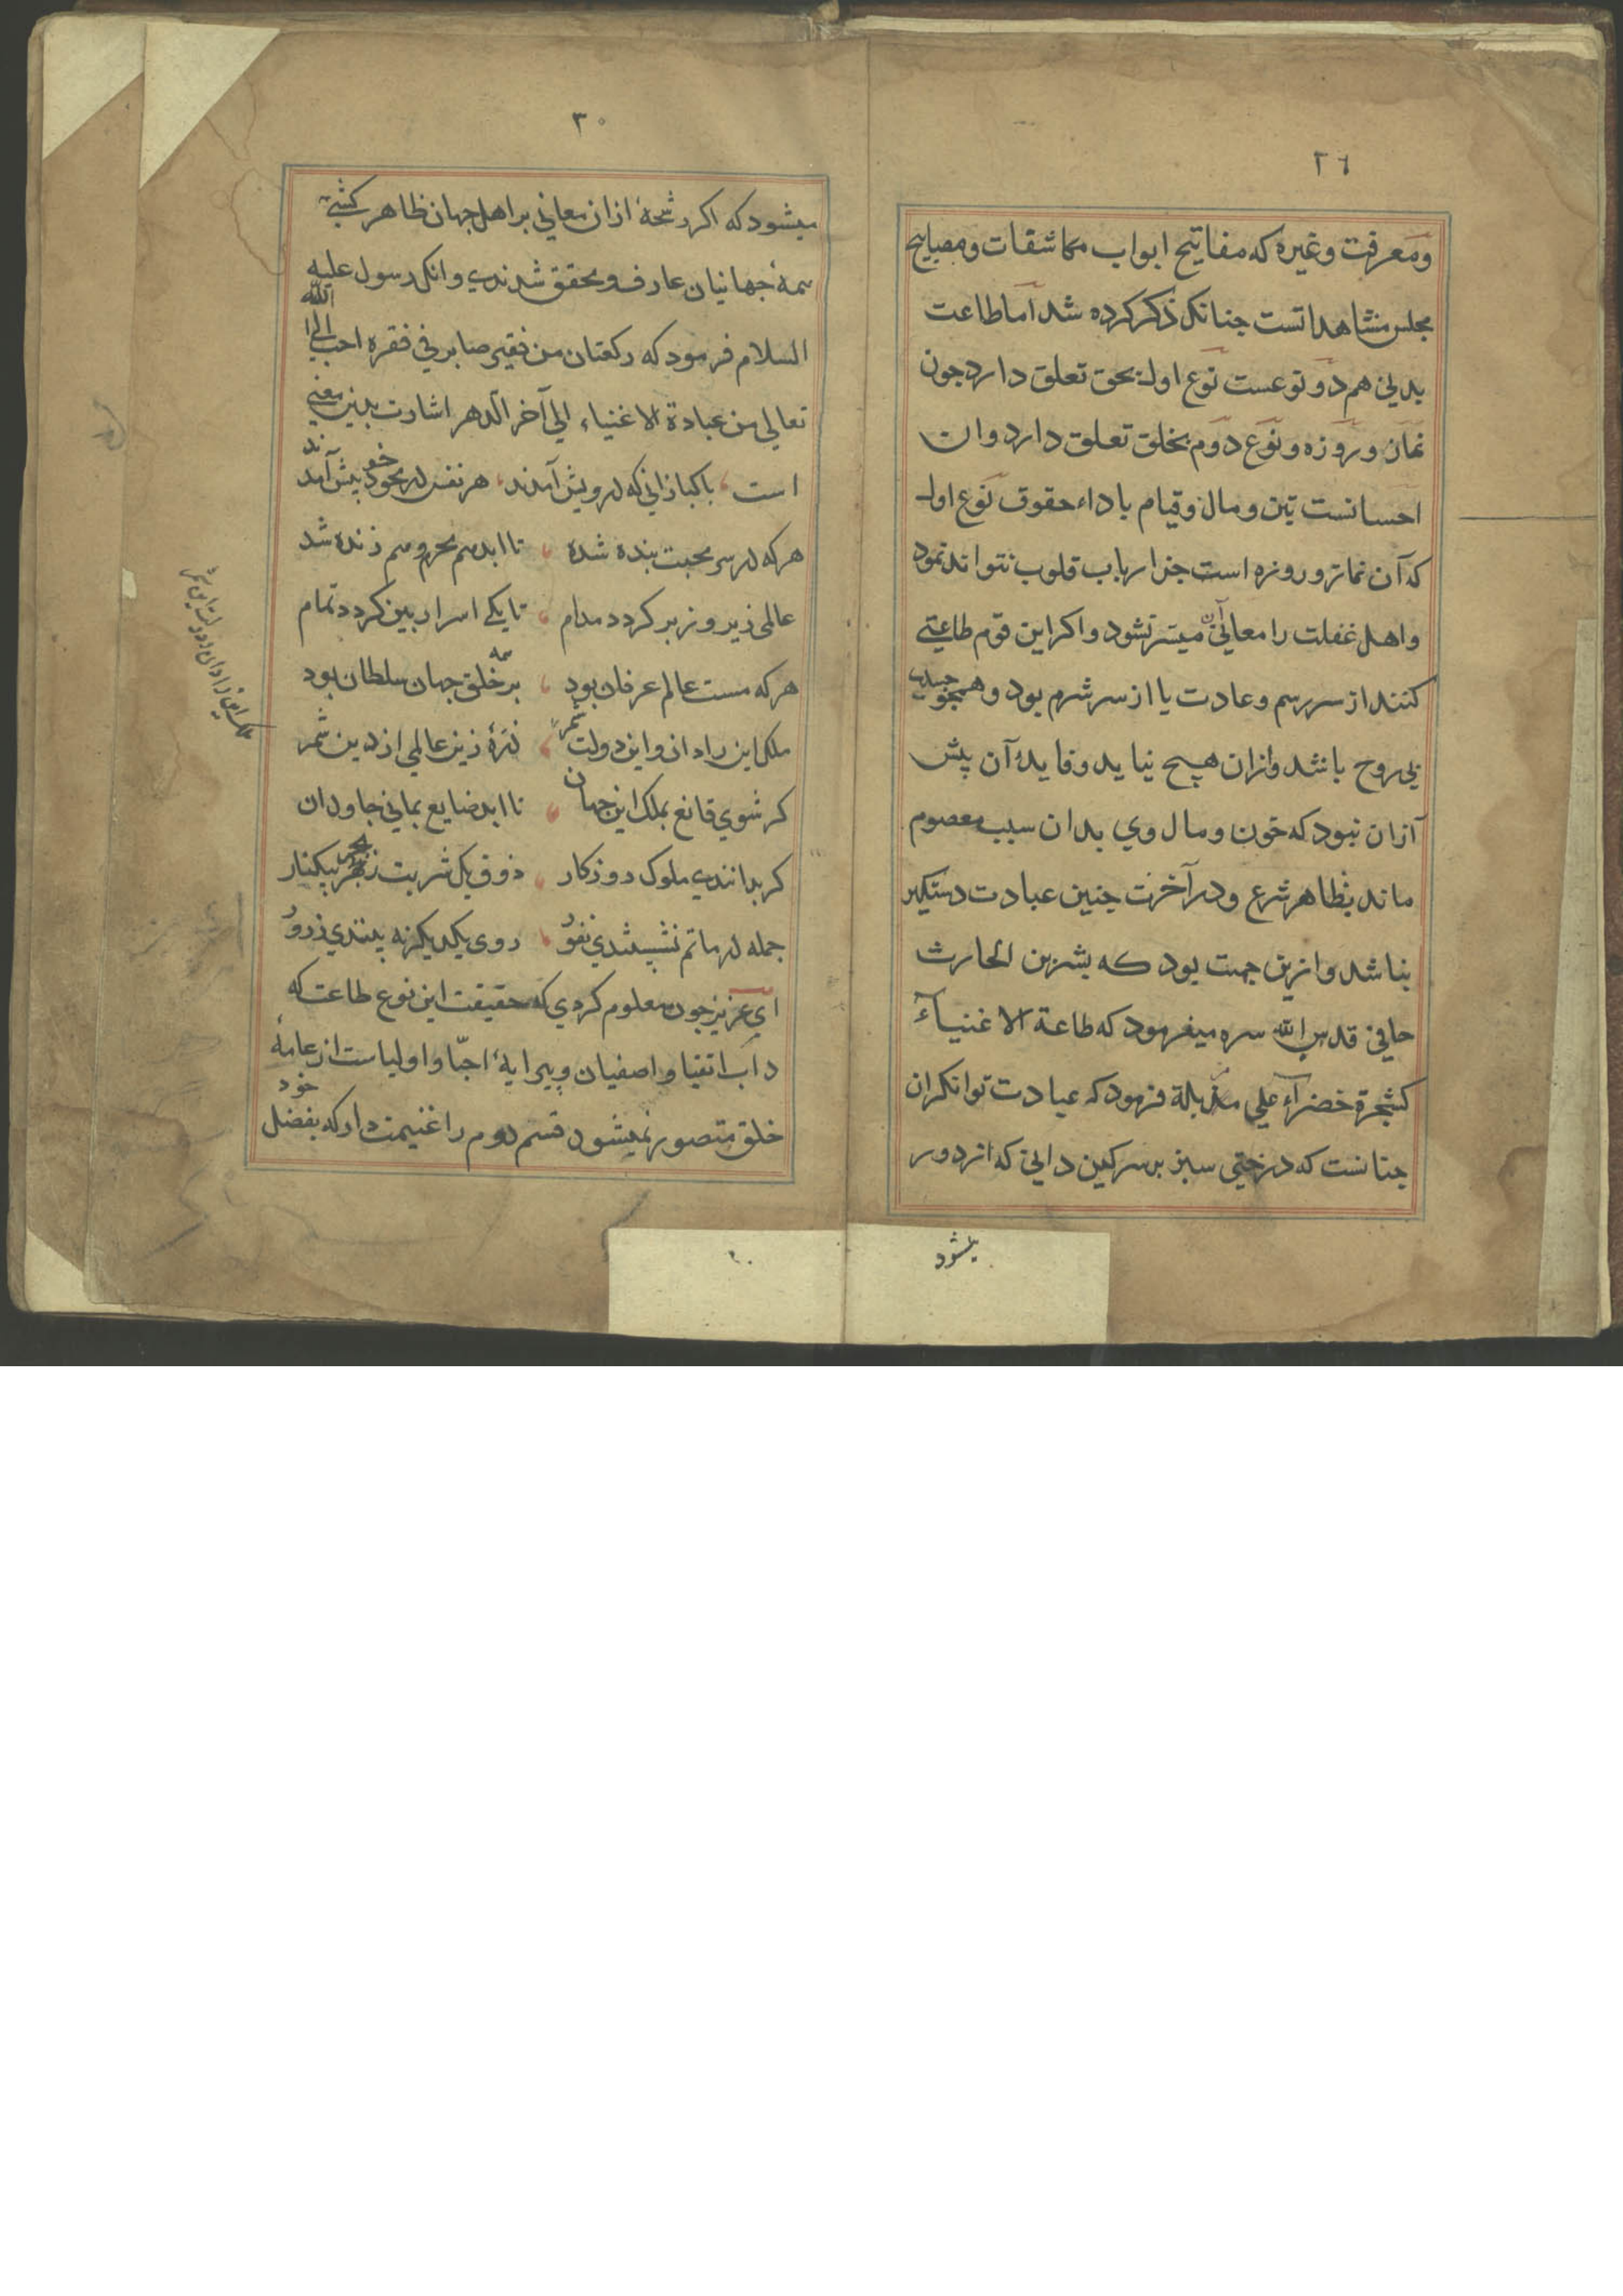 ٢٦
ومعرفت وغیره که مفاتیح ابواب مکاشفات ومصابیح
مجلس مشاهداتست جنانک ذکر کرده شد اما طاعت
بدنی هم دو نوعست نوع اول بحق تعلق دارد جون
نماز وروزه ونوع دوم بخلق تعلق دارد وان
احسانست بتن ومال وقیام باداء حقوق نوع اول
که آن نماز وروزه است جز ارباب قلوب نتواند نمود
واهل غفلت را معانی آن میسر نشود واکر این قوم طاعتی
کنند از سر رسم وعادت یا از سر شرم بود وهمجو جسدی
بی روح باشد وازان هیچ نیاید وفایدۀ آن پیش
ازان نبود که خون ومال وی بدان سبب معصوم
ماند بظاهر شرع ودر آخرت جنین عبادت دستکیر
نباشد وازین جهت بود که بشر بن الحارث
حافی قدس الله سره میفرمود که طاعة الاغنیآء
کشجرة خضرآء علی مزبلة فرمود که عبادت توانکران
جنانست که درختی سبز بر سرکین دانی که از دور
میشود
٣٠
میشود که اکر رشحۀ ازان معانی بر اهل جهان ظاهر کشتی
همۀ جهانیان عارف ومحقق شدندی وانک رسول علیه
السلام فرمود که رکعتان من فقیر صابر فی فقره احب الی الله
تعالی من عبادة الاغنیاء الی آخر الدهر اشارت بدین معنی
است باکبازانی که درویش آمدند هر نفس در محو خود بیش آمدند
هر که در سر محبت بنده شد تا ابد هم محرم وهم زنده شد
عالمی زیر وزبر کردد مدام تا یکی اسرار بین کردد تمام
هر که مست عالم عرفان بود بر همه خلق جهان سلطان بود
ملک این را دان واین دولت شمر ذرۀ زین عالمی از دین شمر
کر شوی قانع بملک این جهان تا ابد ضایع بمانی جاودان
کر بدانندی ملوک روزکار ذوق یک شربت ز بحر بیکنار
جمله در ماتم نشینندی نفو روی یکدیکر نه بینندی ز درو
ای عزیز جون معلوم کردی که حقیقت این نوع طاعت که
دأب اتقیا واصفیان وپیرایۀ احبا واولیاست از عامۀ
خلق متصور نمیشود قسم دوم را غنیمت دار که بفضل خود
ملک این را دان ودولت این شمر